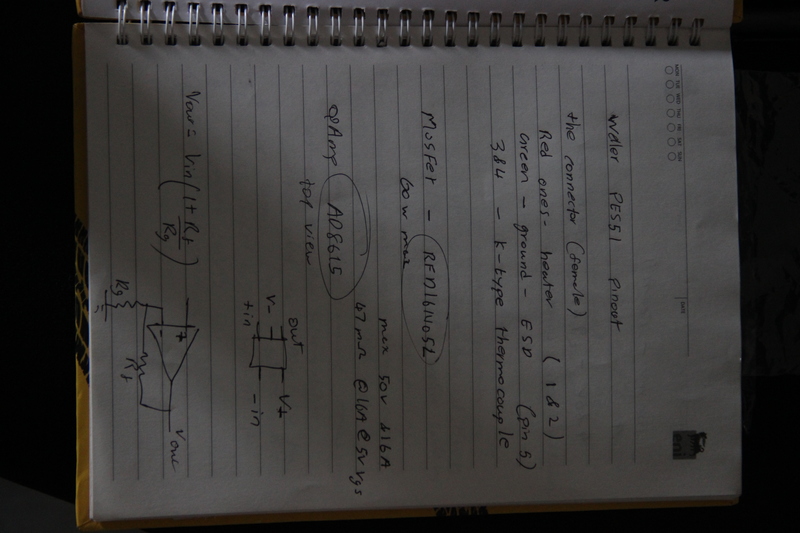 MON TUE WED THU FRI SAT SUN
DATE
Weller PES51 pinout
the connector (female)
Red ones - heater (1 & 2)
Green - ground - ESD (pin 5)
3&4 - k-type thermocouple
Mosfet - RFD16N05L
60w max
max 50v & 16A
47mΩ @ 16A @ 5v Vgs
OpAmp AD8615
top view
out
V-
+in
V+
-in
Vout = Vin (1 + Rf/Rg)
+
-
Vout
Rg
Rf